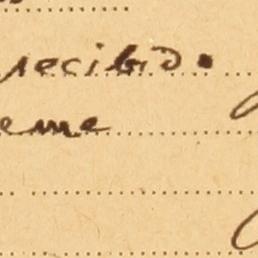 recibid.
eme